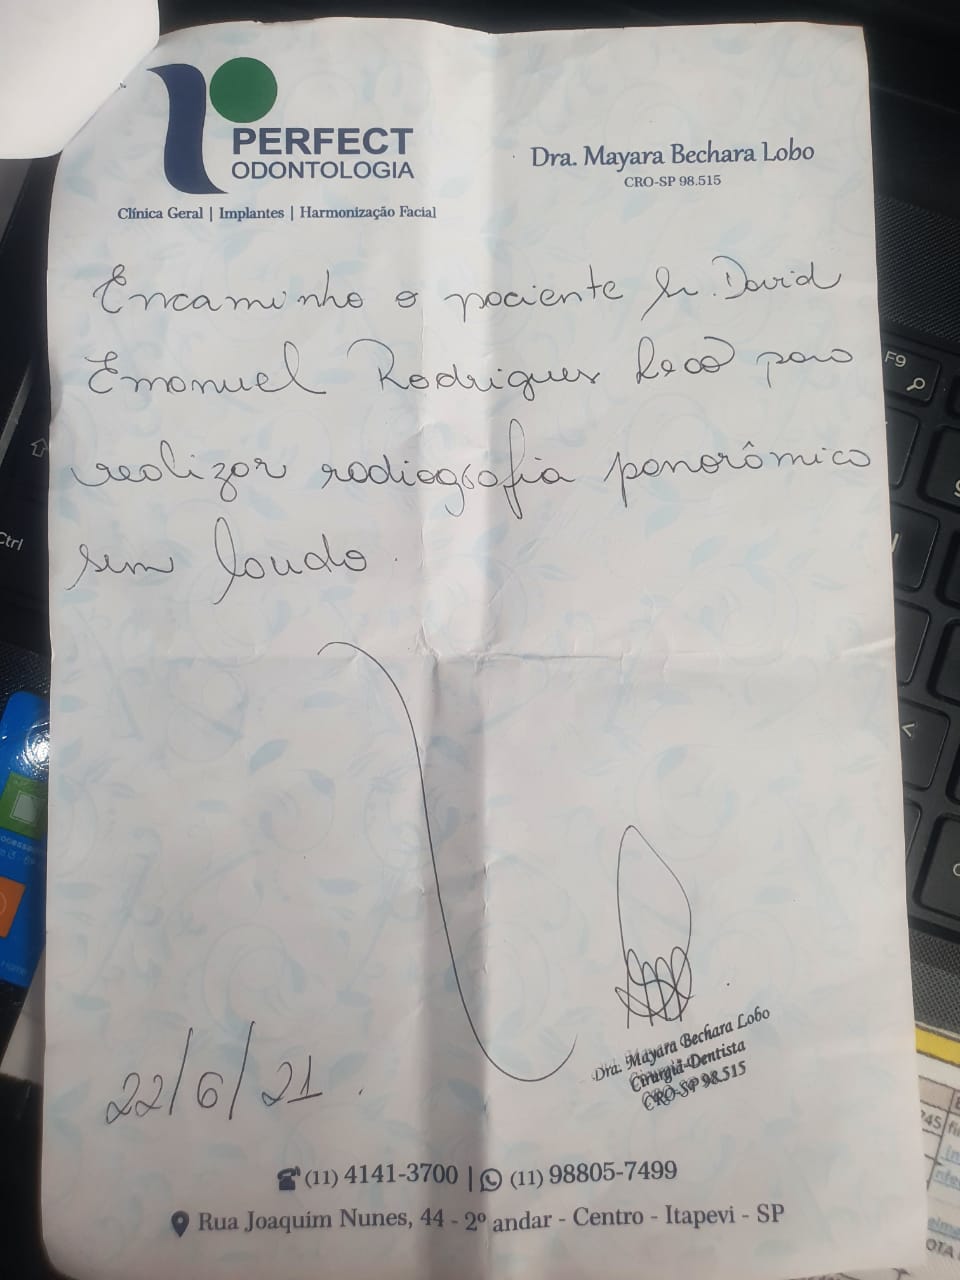 PERFECT
ODONTOLOGIA
Clínica Geral | Implantes | Harmonização Facial
Dra. Mayara Bechara Lobo
CRO-SP 98.515
Encaminho o paciente Sr. David
Emanuel Rodrigues para
realizar radiografia panorâmica
sem laudo.
22/6/21.
Dra. Mayara Bechara Lobo
Cirurgiã-Dentista
CRO-SP 98.515
(11) 4141-3700 | (11) 98805-7499
Rua Joaquim Nunes, 44 - 2º andar - Centro - Itapevi - SP
F9
Ctrl